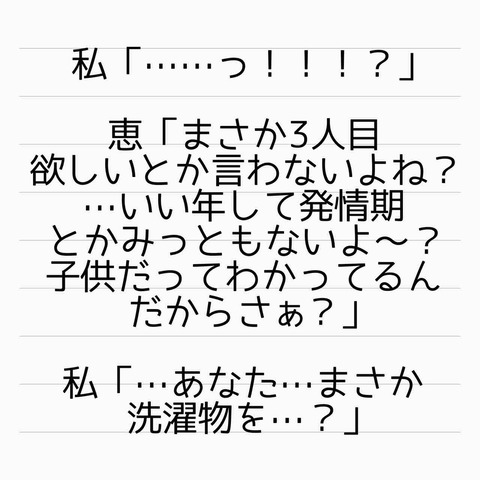 私「……っ！！！？」
恵「まさか3人目
欲しいとか言わないよね？
…いい年して発情期
とかみっともないよ〜？
子供だってわかってるん
だからさぁ？」
私「…あなた…まさか
洗濯物を…？」